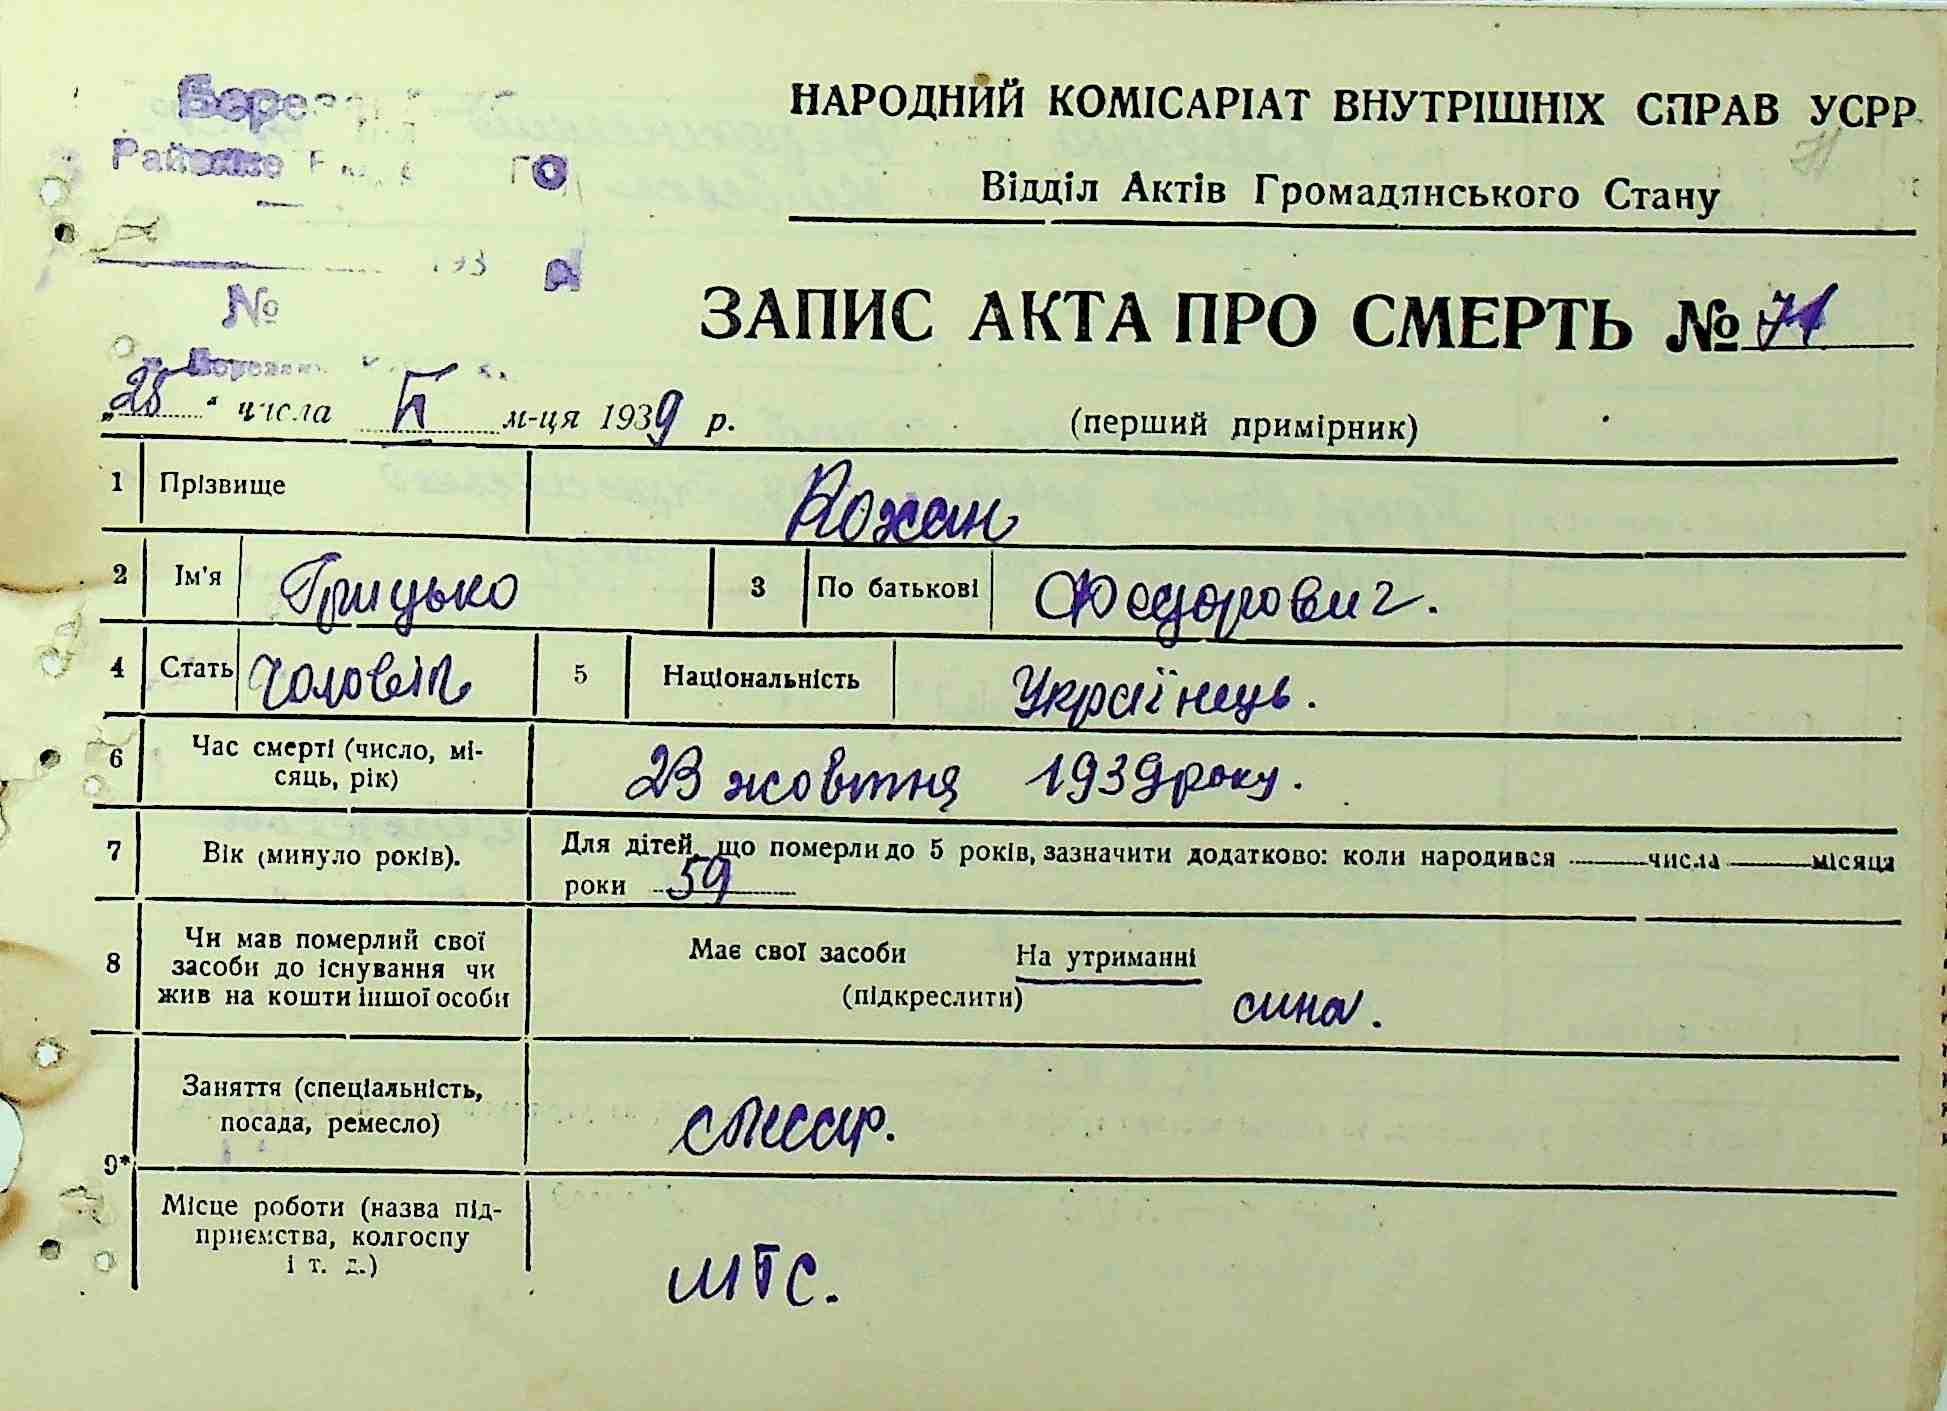 НАРОДНИЙ КОМІСАРІАТ ВНУТРІШНІХ СПРАВ УСРР
Відділ Актів Громадянського Стану
Районне
№
ЗАПИС АКТА ПРО СМЕРТЬ № 71
„28“ числа м-ця 1939 р. (перший примірник)
1 Прізвище Кожан
2 Ім'я Грицько 3 По батькові Федорович.
4 Стать Чоловік 5 Національність Українець.
6 Час смерті (число, мі-
сяць, рік) 23 жовтня 1939 року.
7 Вік (минуло років). Для дітей, що померли до 5 років, зазначити додатково: коли народився числа місяця
роки 59
8 Чи мав померлий свої
засоби до існування чи
жив на кошти іншої особи
Має свої засоби На утриманні
(підкреслити) сина.
9*
Заняття (спеціальність,
посада, ремесло) слюсар.
Місце роботи (назва під-
приємства, колгоспу
і т. д.) МТС.